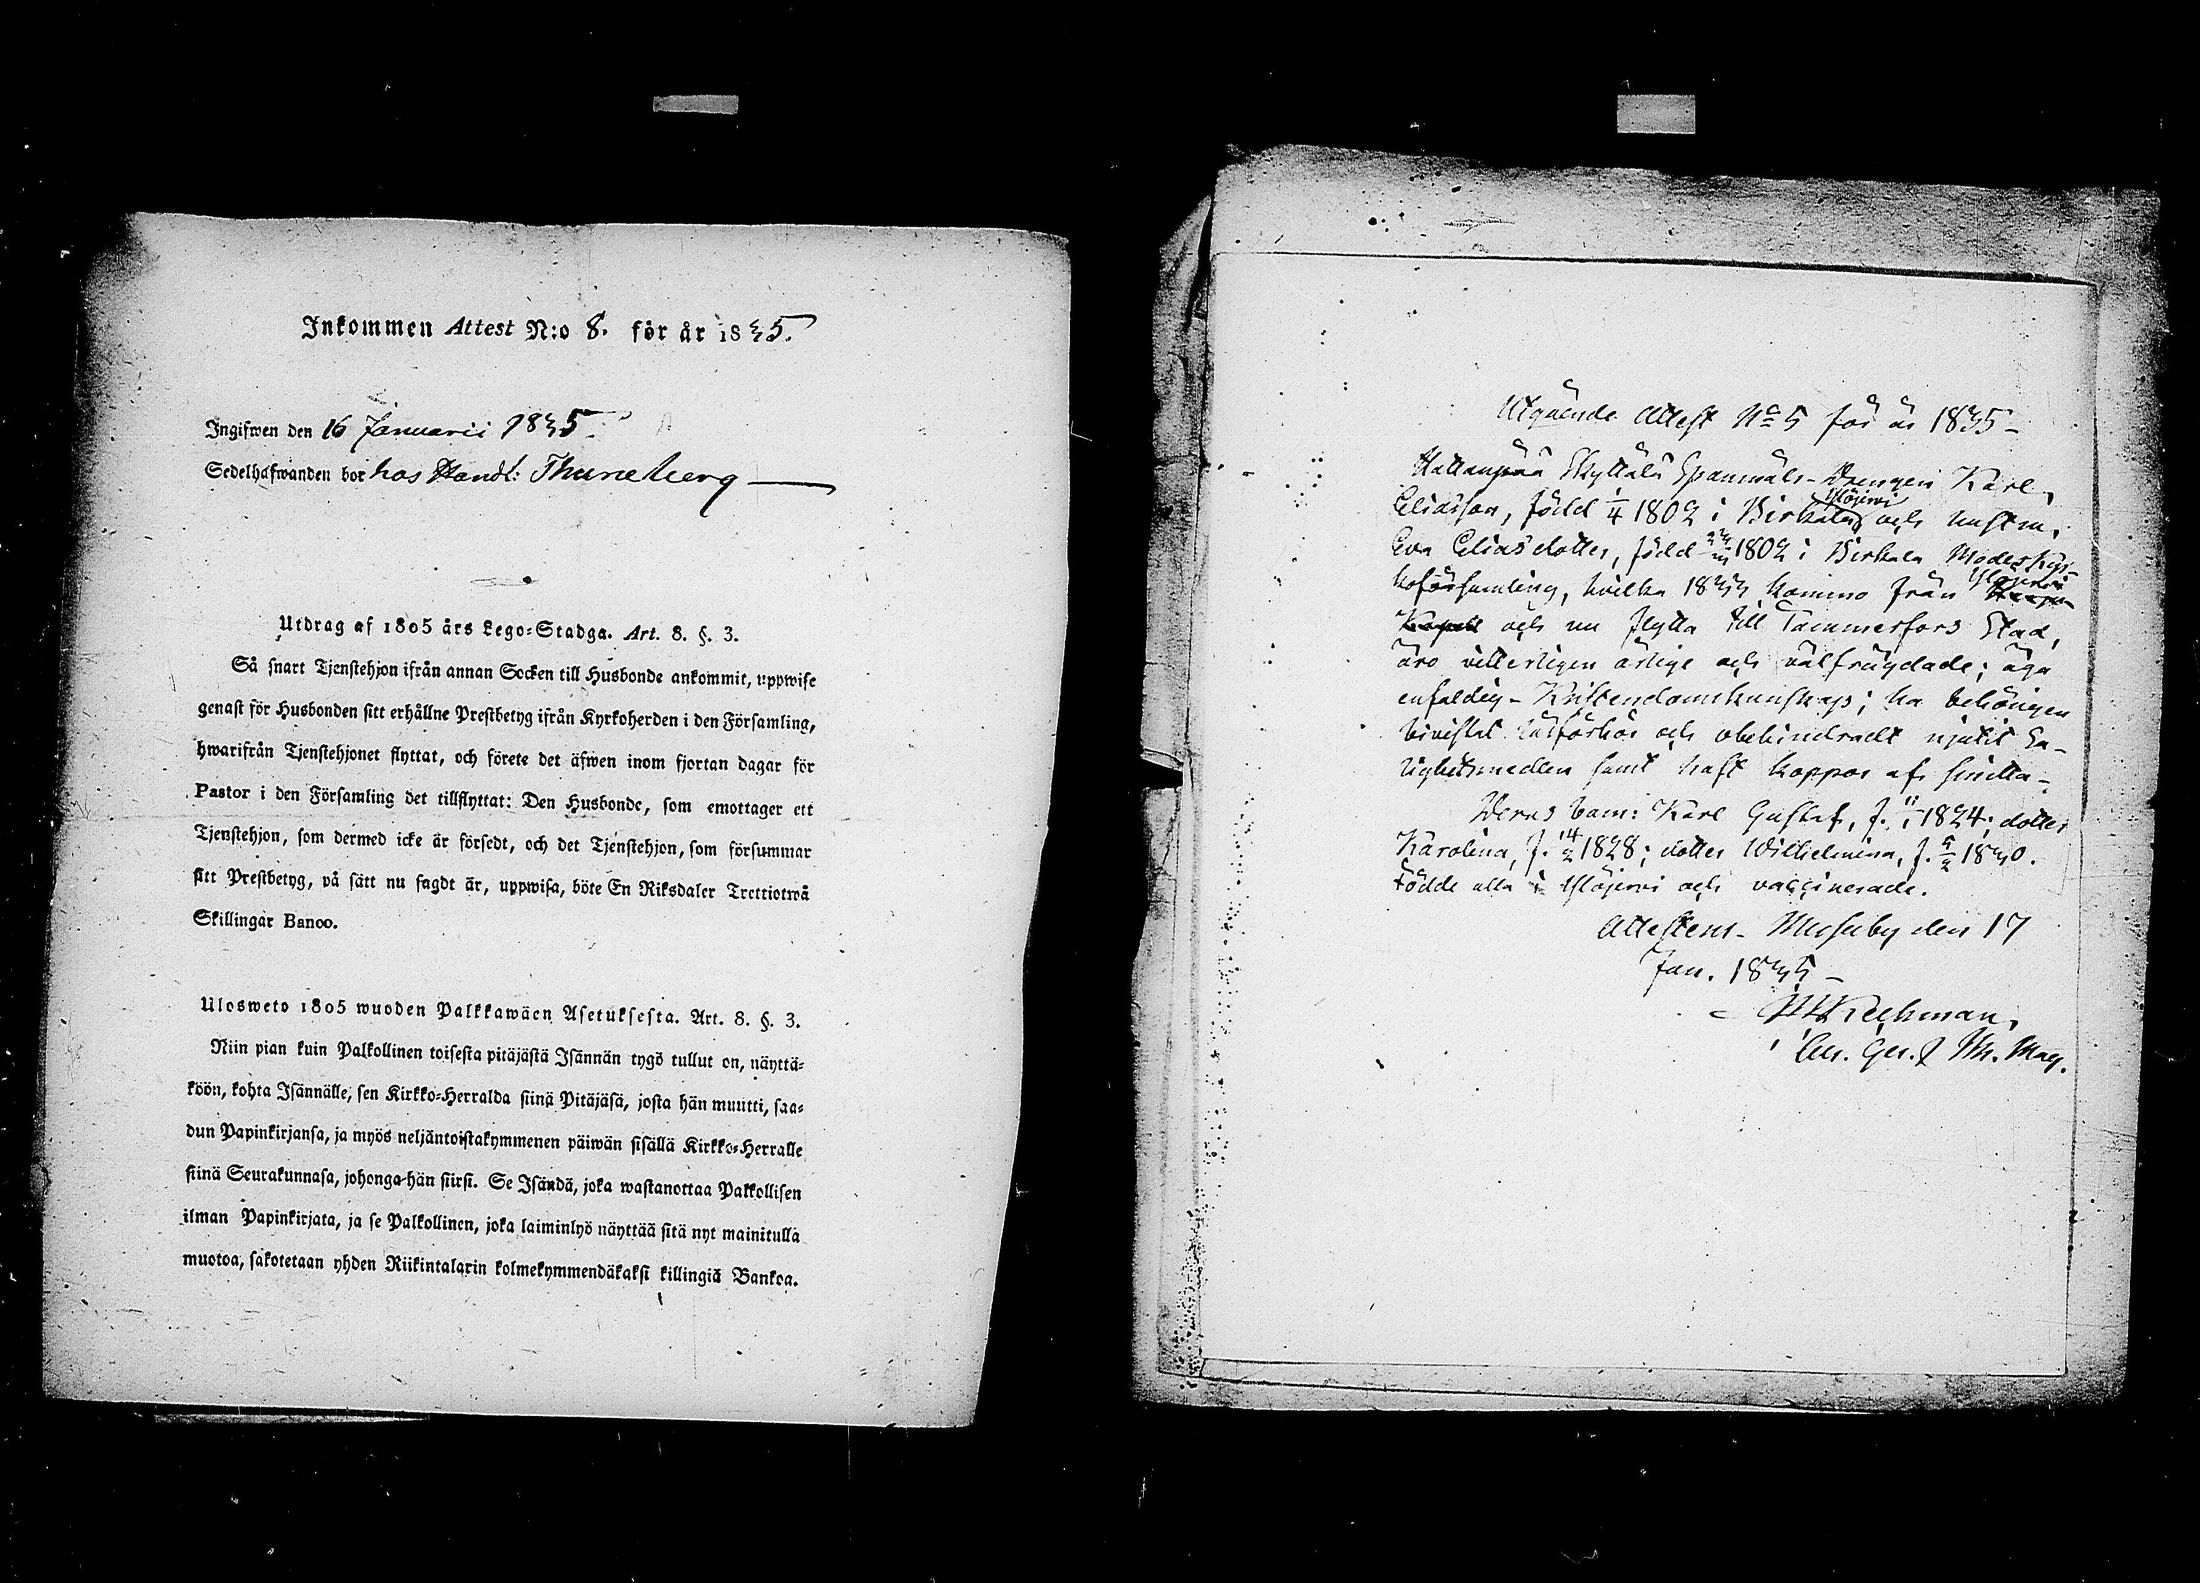 Inkommen Attest N:o 8. för år 1835.
Ingifwen den 16 Januarii 1835.
Sedelhafwanden bor hos Handl: Thuneberg
Utdrag af 1805 års Lego-Stadga. Art. 8. §. 3.
Så snart Tjenstehjon ifrån annan Socken till Husbonde ankommit, uppwise
genast för Husbonden sitt erhållne Prestbetyg ifrån Kyrkoherden i den Församling,
hwarifrån Tjenstehjonet flyttat, och förete det äfwen inom fjortan dagar för
Pastor i den Församling det tillflyttat: Den Husbonde, som emottager ett
Tjenstehjon, som dermed icke är försedt, och det Tjenstehjon, som försummar
sitt Prestbetyg, på sätt nu sagdt är, uppwisa, böte En Riksdaler Trettiotwå
Skillingar Banco.
Ulosweto 1805 wuoden Palkkawäen Asetuksesta. Art. 8. §. 3.
Niin pian kuin Palkollinen toisesta pitäjästä Isännän tygö tullut on, näyttä-
köön, kohta Isännälle, sen Kirkko-Herralda siinä Pitäjäsä, josta hän muutti, saa-
dun Papinkirjansa, ja myös neljäntoistakymmenen päiwän sisällä Kirkko-Herralle
siinä Seurakunnasa, johonga hän siirsi. Se Isändä, joka wastanottaa Palkollisen
ilman Papinkirjata, ja se Palkollinen, joka laiminlyö näyttää sitä nyt mainitulla
muotoa, sakotetaan yhden Riikintalarin kolmekymmendäkaksi killingiä Bankoa.
Utgående Attest No 5 för år 1835
Hattanpää Skyttälä Spanmåls-Drengen Karl
Eliasson, född 1/4 1802 i Birkala Ylöjerwi och hustrun,
Eva Eliasdotter, född 1802 i Birkala Moderkyr-
koförsamling, hvilka 1833 kommo från Ylöjerwi
Kapell och nu flytta till Tammerfors Stad,
äro vitterligen ärlige och välfrägdade; äga
enfaldig Kristendomskunskap; ha behörigen
bivistat läsförhör och obehindradt njutit Sa-
lighetsmedlen samt haft koppor af smitta.
Deras barn: Karl Gustaf, f. 11/1 1824; dotter
Karolina, f. 14/2 1828; dotter Wilhelmina, f. 5/2 1830.
Födde alla i Ylöjerwi och vaccinerade.
Attesteras Messuby den 17
Jan. 1835